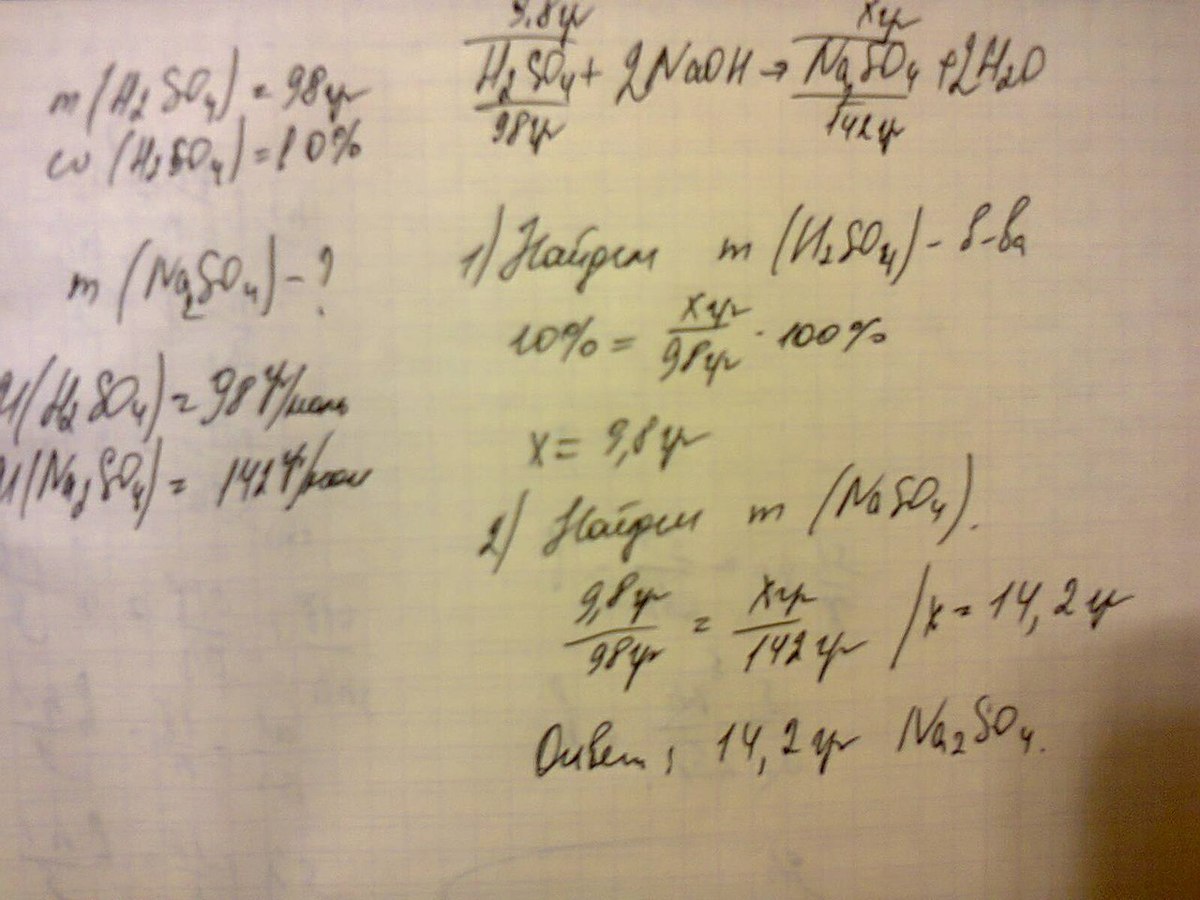 m (H₂SO₄) = 98гр
ω (H₂SO₄) = 10%
m (Na₂SO₄) - ?
M(H₂SO₄) = 98 г/моль
M(Na₂SO₄) = 142 г/моль
9,8гр xгр
H₂SO₄ + 2NaOH → Na₂SO₄ + 2H₂O
98гр 142гр
1) Найдем m (H₂SO₄) - в-ва
10% = xгр/98гр · 100%
x = 9,8гр
2) Найдем m (NaSO₄).
9,8гр/98гр = xгр/142гр / x = 14,2гр
Ответ: 14,2гр Na₂SO₄.